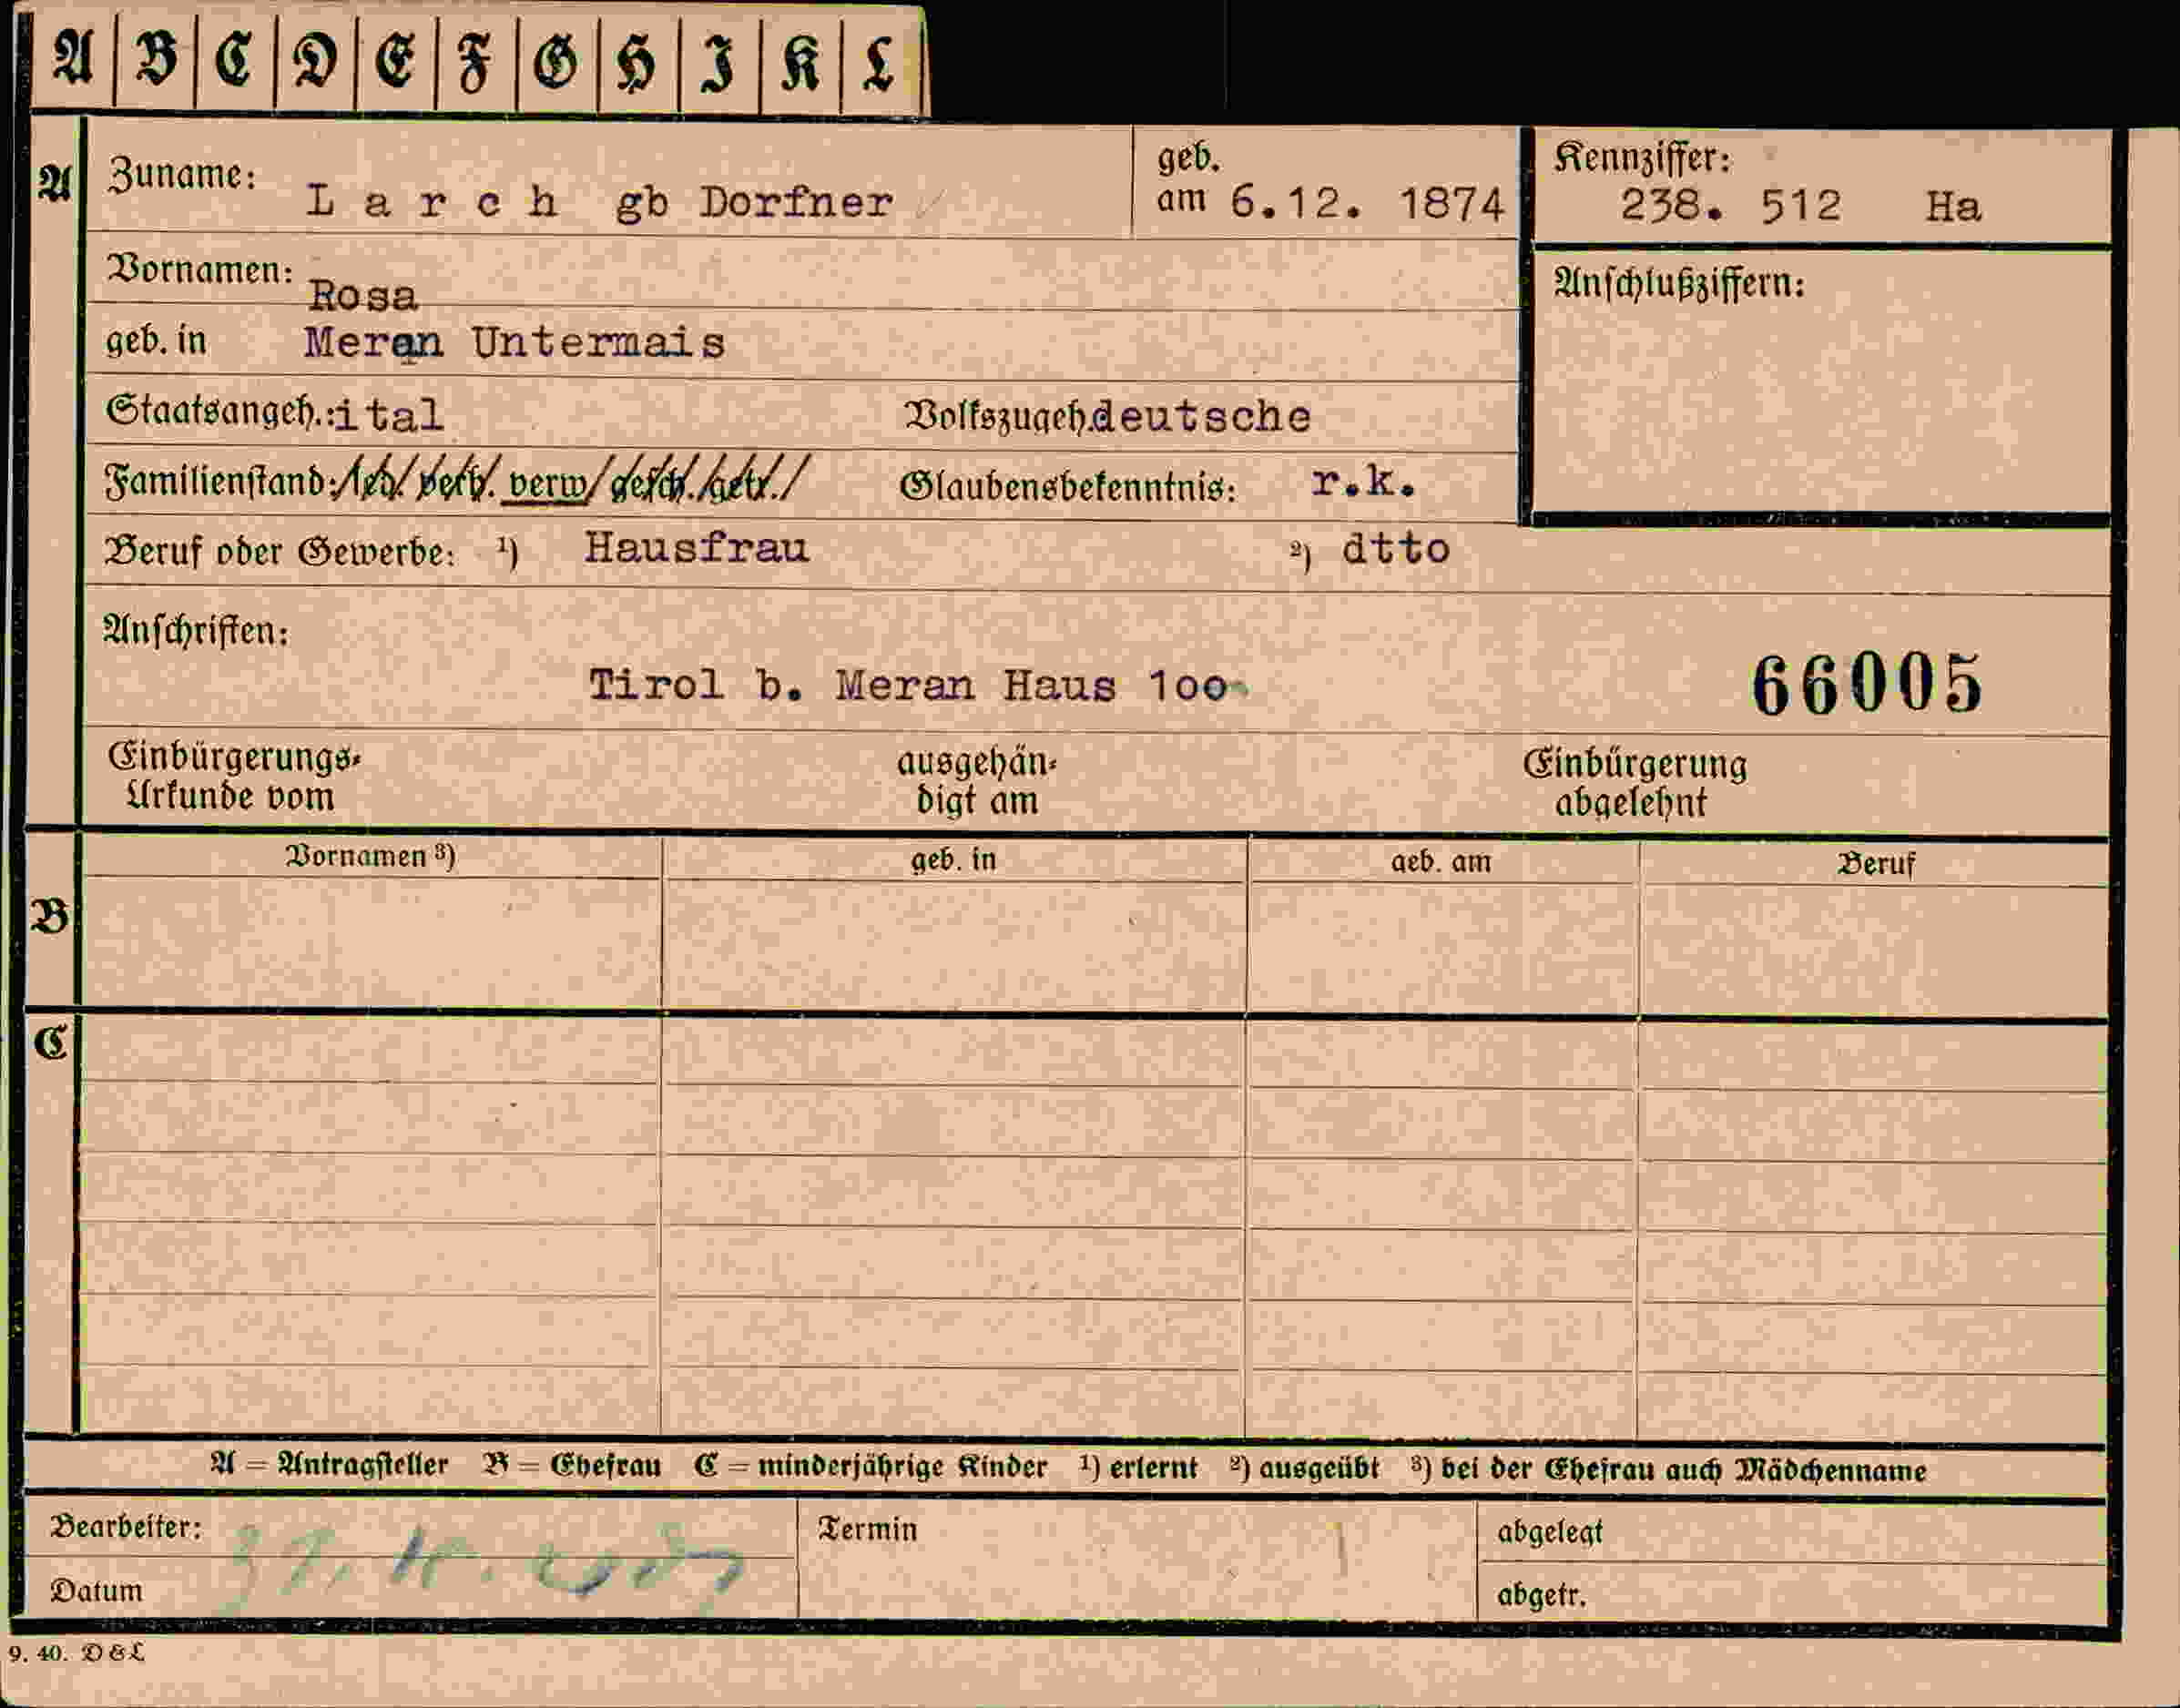 A B C D E F G H I K L
A Zuname: Larch gb Dorfner geb. am 6.12. 1874 Kennziffer: 238. 512 Ha
Vornamen: Rosa Anschlußziffern:
geb. in Meran Untermais
Staatsangeh.: ital Volkszugeh. deutsche
Familienstand: led. verh. verw gesch. getr. Glaubensbekenntnis: r.k.
Beruf oder Gewerbe: ¹) Hausfrau ²) dtto
Anschriften:
Tirol b. Meran Haus 1oo 66005
Einbürgerungs- ausgehän- Einbürgerung
Urkunde vom digt am abgelehnt
Vornamen ³) geb. in geb. am Beruf
B
C
A = Antragsteller B = Ehefrau C = minderjährige Kinder ¹) erlernt ²) ausgeübt ³) bei der Ehefrau auch Mädchenname
Bearbeiter: Termin abgelegt
Datum abgetr.
9. 40. D&L